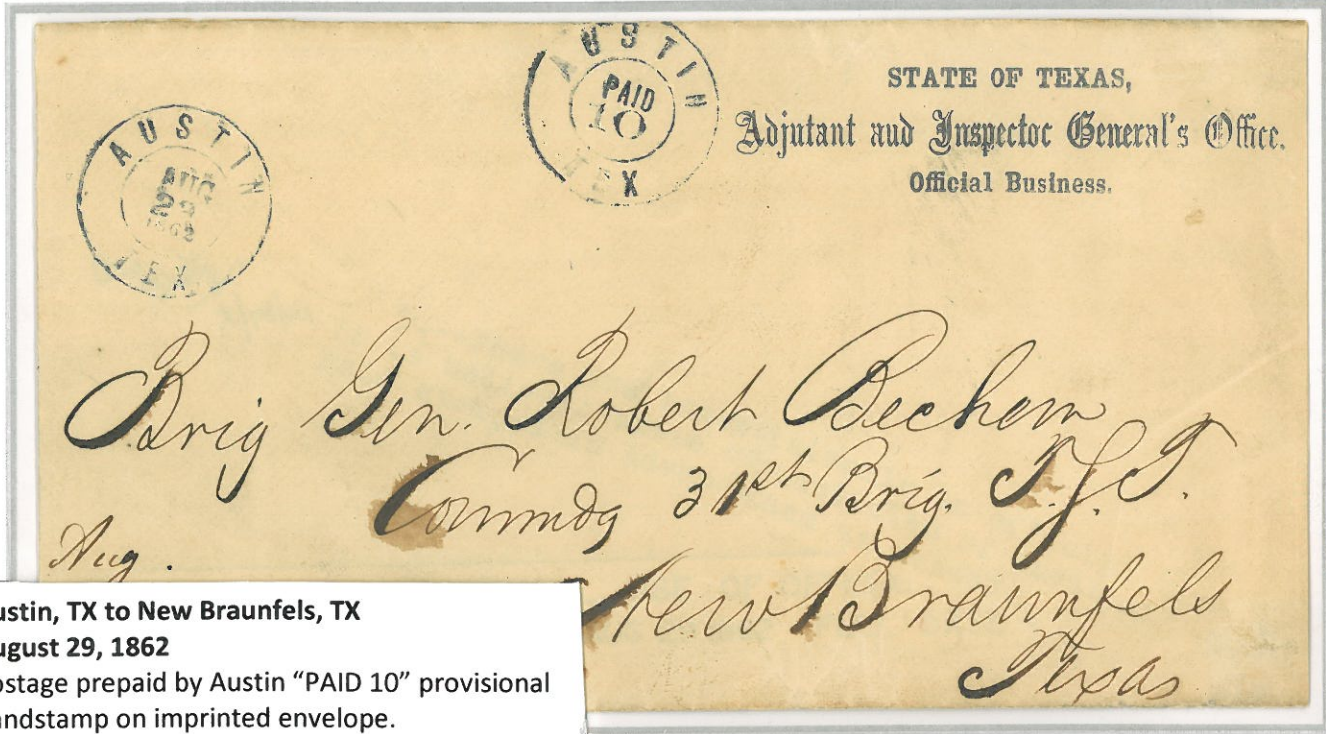 AUSTIN
PAID
10
TEX
STATE OF TEXAS,
Adjutant and Inspector General's Office.
Official Business.
AUSTIN
AUG
29
1862
TEX
Brig Gen. Robert Bechem
Commdg 31st Brig. T.S.T.
Aug.
New Braunfels
Texas
ustin, TX to New Braunfels, TX
ugust 29, 1862
ostage prepaid by Austin “PAID 10” provisional
andstamp on imprinted envelope.